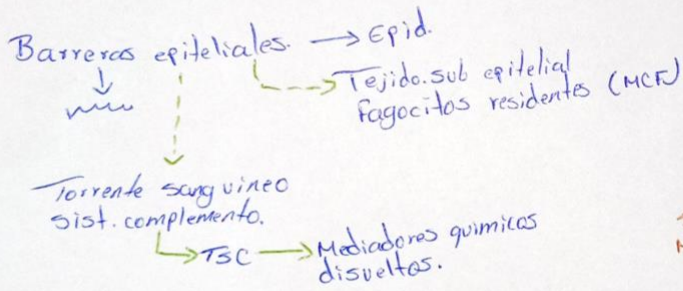 Barreras epiteliales. → Epid.
Tejido. sub epitelial
fagocitos residentes (MCF)
Torrente sanguineo
sist. complemento.
TSC → Mediadores quimicos
disueltos.